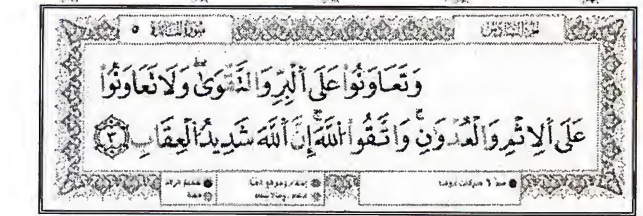 سُورَةُ المَائـِدَةِ ٥
الجُزْءُ السَّادِسُ
وَتَعَاوَنُوا۟ عَلَى ٱلْبِرِّ وَٱلتَّقْوَىٰ ۖ وَلَا تَعَاوَنُوا۟
عَلَى ٱلْإِثْمِ وَٱلْعُدْوَٰنِ ۚ وَٱتَّقُوا۟ ٱللَّهَ ۖ إِنَّ ٱللَّهَ شَدِيدُ ٱلْعِقَابِ ٢